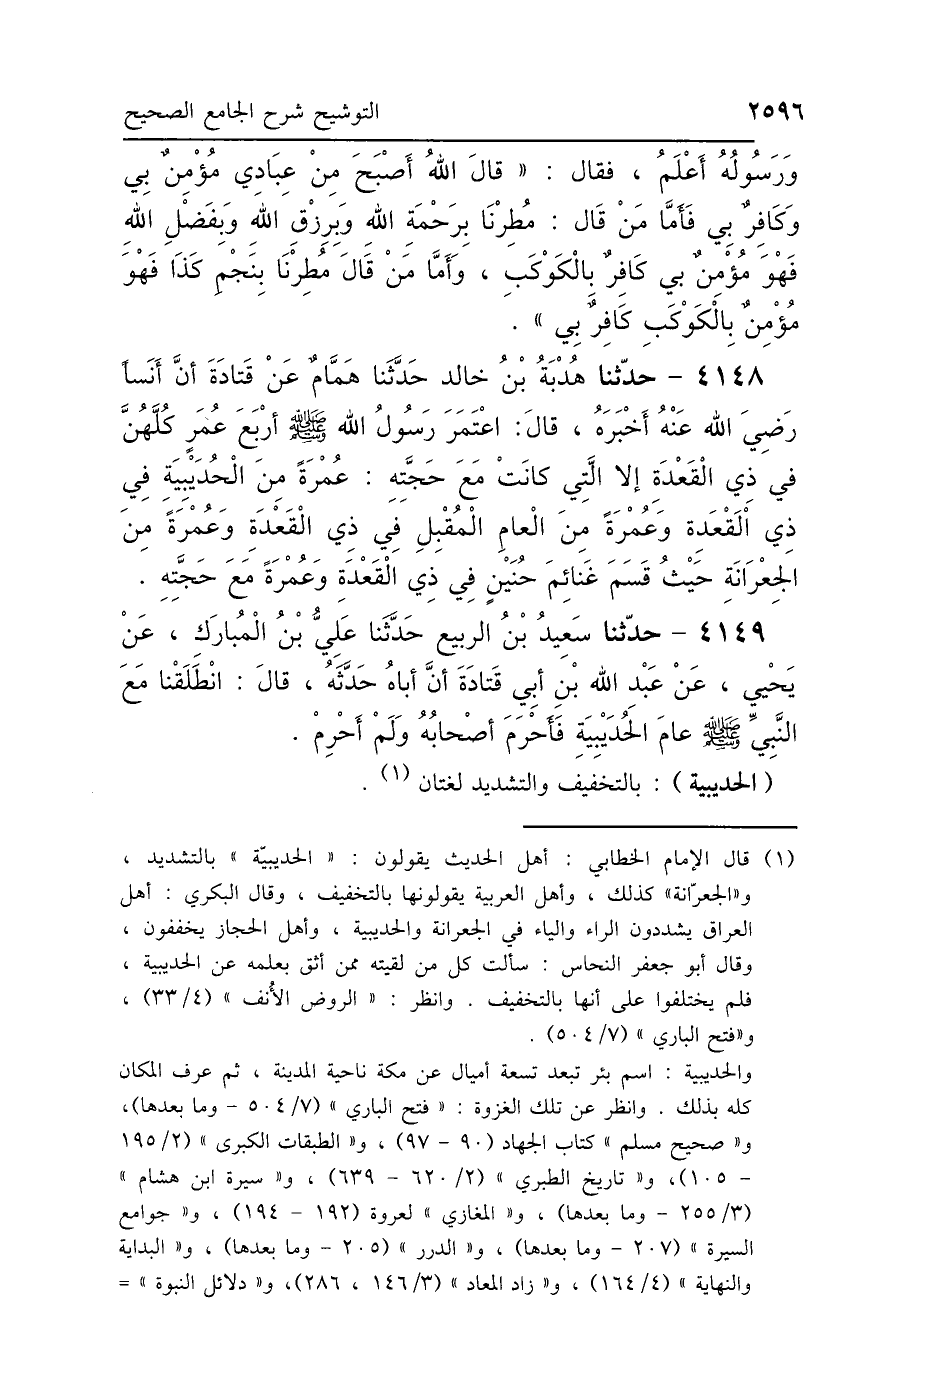 ٢٥٩٦ التوشيح شرح الجامع الصحيح
وَرَسُولُهُ أَعْلَمُ ، فقال : « قالَ اللهُ أَصْبَحَ مِنْ عِبَادِي مُؤْمِنٌ بِي
وَكَافِرٌ بِي فَأَمَّا مَنْ قَال : مُطِرْنَا بِرَحْمَةِ اللهِ وَبِرِزْقِ اللهِ وَبِفَضْلِ اللهِ
فَهْوَ مُؤْمِنٌ بِي كَافِرٌ بِالْكَوْكَبِ ، وَأَمَّا مَنْ قَالَ مُطِرْنَا بِنَجْمِ كَذَا فَهْوَ
مُؤْمِنٌ بِالْكَوْكَبِ كَافِرٌ بِي » .
٤١٤٨ - حدّثنا هُدْبَةُ بْنُ خالد حَدَّثَنا هَمَّامٌ عَنْ قَتادَةَ أنَّ أَنَساً
رَضِيَ الله عَنْهُ أَخْبَرَهُ ، قالَ: اعْتَمَرَ رَسُولُ الله ﷺ أرْبَعَ عُمَرٍ كُلَّهُنَّ
في ذِي الْقَعْدَةِ إلا الَّتِي كانَتْ مَعَ حَجَّتِهِ : عُمْرَةً مِنَ الْحُدَيْبِيَةِ فِي
ذِي الْقَعْدَةِ وَعُمْرَةً مِنَ الْعامِ الْمُقْبِلِ فِي ذِي الْقَعْدَةِ وَعُمْرَةً مِنَ
الجِعْرَانَةِ حَيْثُ قَسَمَ غَنائِمَ حُنَيْنٍ فِي ذِي الْقَعْدَةِ وَعُمْرَةً مَعَ حَجَّتِهِ .
٤١٤٩ - حدّثنا سَعِيدُ بْنُ الربيع حَدَّثَنا عَلِيُّ بْنُ الْمُبارَكِ ، عَنْ
يَحْيي ، عَنْ عَبْدِ اللهِ بْنِ أبي قَتادَةَ أنَّ أباهُ حَدَّثَهُ ، قالَ : انْطَلَقْنا مَعَ
النَّبِيِّ ﷺ عامَ الحُدَيْبِيَةِ فَأَحْرَمَ أصْحابُهُ وَلَمْ أُحْرِمْ .
( الحديبية ) : بالتخفيف والتشديد لغتان (١) .
(١) قال الإمام الخطابي : أهل الحديث يقولون : « الحديبيّة » بالتشديد ،
و«الجعرّانة» كذلك ، وأهل العربية يقولونها بالتخفيف ، وقال البكري : أهل
العراق يشددون الراء والياء في الجعرانة والحديبية ، وأهل الحجاز يخففون ،
وقال أبو جعفر النحاس : سألت كل من لقيته ممن أثق بعلمه عن الحديبية ،
فلم يختلفوا على أنها بالتخفيف . وانظر : « الروض الأُنف » (٣٣/٤) ،
و«فتح الباري » (٥٠٤/٧) .
والحديبية : اسم بئر تبعد تسعة أميال عن مكة ناحية المدينة ، ثم عرف المكان
كله بذلك . وانظر عن تلك الغزوة : « فتح الباري » (٥٠٤/٧ - وما بعدها)،
و« صحيح مسلم » كتاب الجهاد (٩٠ - ٩٧) ، و« الطبقات الكبرى » (١٩٥/٢
- ١٠٥)، و« تاريخ الطبري » (٦٢٠/٢ - ٦٣٩) ، و« سيرة ابن هشام »
(٢٥٥/٣ - وما بعدها) ، و« المغازي » لعروة (١٩٢ - ١٩٤) ، و« جوامع
السيرة » (٢٠٧ - وما بعدها) ، و« الدرر » (٢٠٥ - وما بعدها) ، و« البداية
والنهاية » (١٦٤/٤) ، و« زاد المعاد » (١٤٦/٣ ، ٢٨٦)، و« دلائل النبوة » =